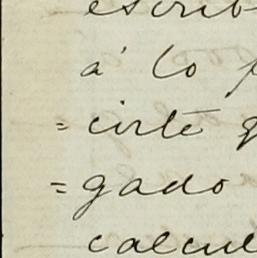 escrib
á lo p
= cirle q
= gado
calcul